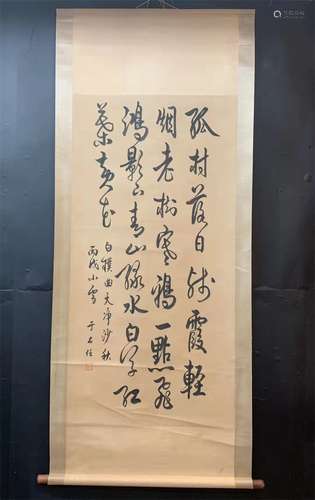 孤村落日殘霞輕
烟老樹寒鴉一點飛
鴻影下青山綠水白草紅
葉黃花
白樸曲天净沙秋
丙戌小雪 于右任